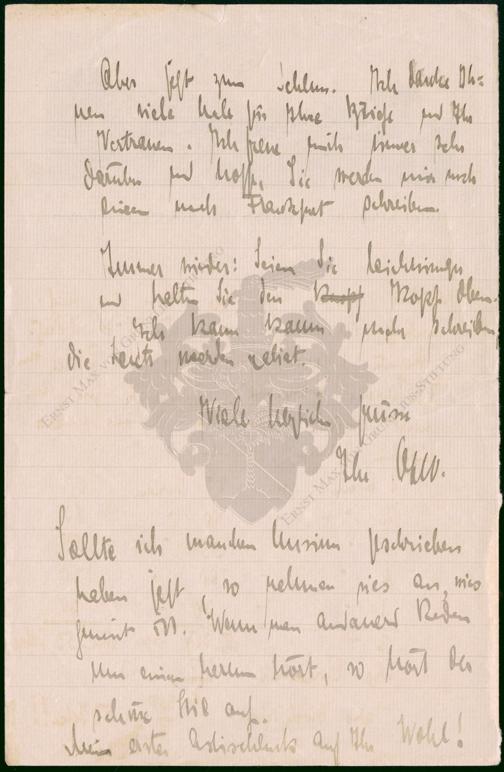 Aber jetzt zum Schluss. Ich danke Ih=
nen viele male für Ihre Briefe und Ihr
Vertrauen. Ich freue mich immer sehr
darüber und hoffe, Sie werden mir noch
einen nach Frankfurt schreiben.
Immer wieder: Seien Sie leichtsinnig
und halten Sie den Kopf Kopf oben.
Ich kann kaum mehr schreiben
die werden
Viele herzliche Grüsse
Ihr
Sollte ich manchen Unsinn geschrieben
haben jetzt, so nehmen sies an, wies
gemeint ist. Wenn man andauernd Reden
um einen herum hört, so hört der
schöne Stil auf.
Mein erster auf Ihr Wohl!
ERNST MAX VON GRUNELIUS-STIFTUNG
ERNST MAX VON GRUNELIUS-STIFTUNG